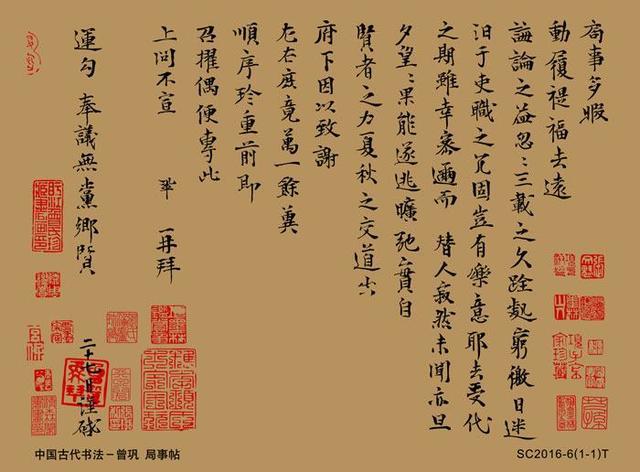 局事多暇
動履禔福去遠
誨論之益忽〻三載之久跧處窮徼日迷
汩于吏職之冗固豈有樂意耶去受代
之期雖幸密邇而 替人寂然未聞亦旦
夕望〻果能遂逃曠弛實自
賢者之力夏秋之交道出
府下因以致謝
左右庶竟萬一餘冀
順序珍重前即
召擢偶便專此
上問不宣 鞏 再拜
運勾 奉議無黨鄉賢
二十七日謹啓
項子京家珍藏
中国古代书法－曾巩 局事帖
SC2016-6(1-1)T